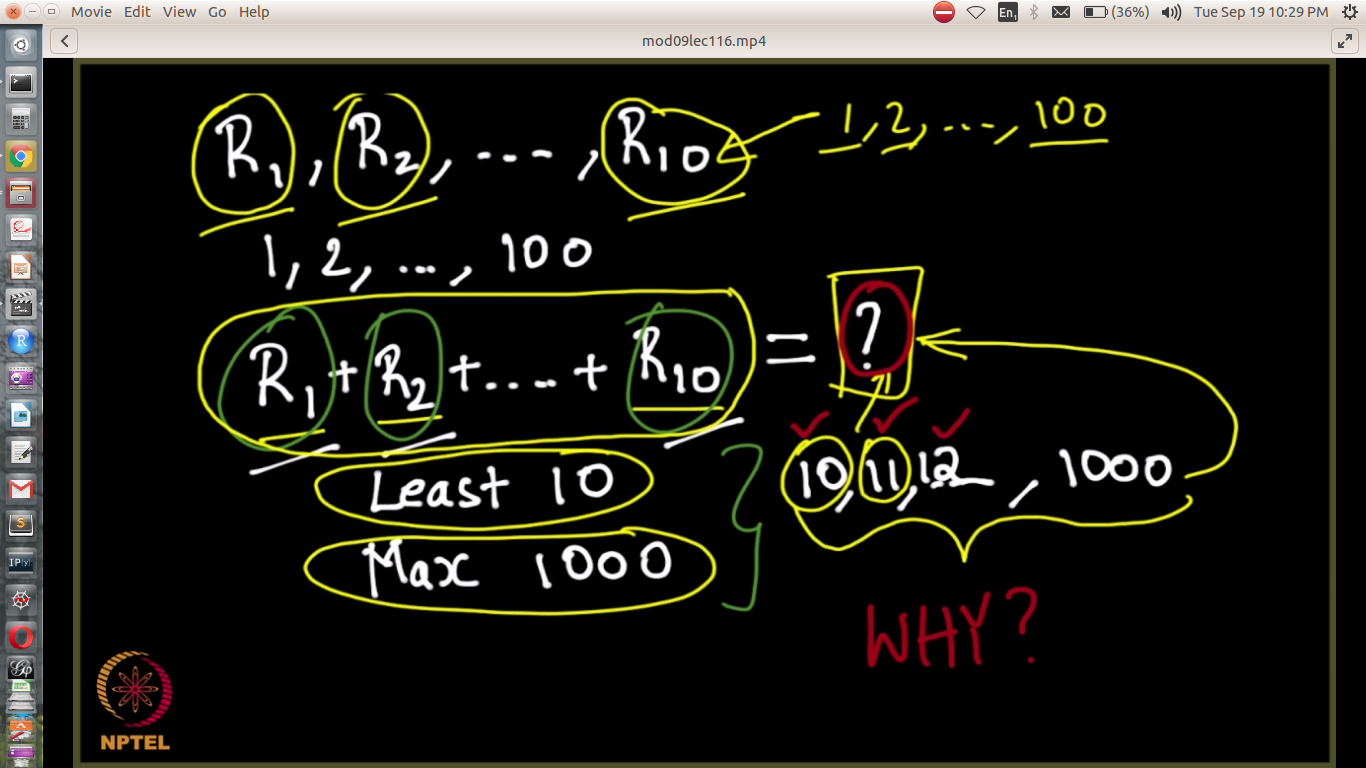 Movie Edit View Go Help
En1 (36%) Tue Sep 19 10:29 PM
mod09lec116.mp4
R1, R2, ...., R10 1, 2, ..., 100
1, 2, ..., 100
R1 + R2 + .... + R10 = ?
Least 10 10, 11, 12 , 1000
Max 1000
WHY?
NPTEL